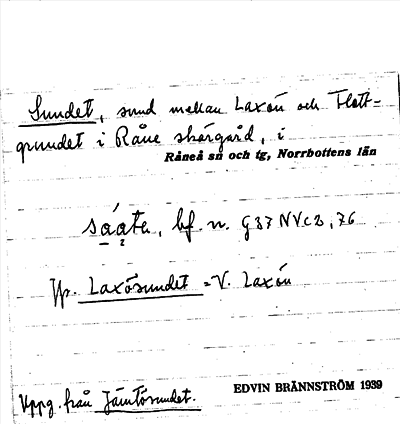 Sundet, sund mellan Laxön och Flott-
grundet i Råne skärgård, i
Råneå sn och tg, Norrbottens län
bf. n. G37 NVc2, 76
Jfr. Laxösundet = V. Laxön
Uppg. från Jämtösundet.
EDVIN BRÄNNSTRÖM 1939